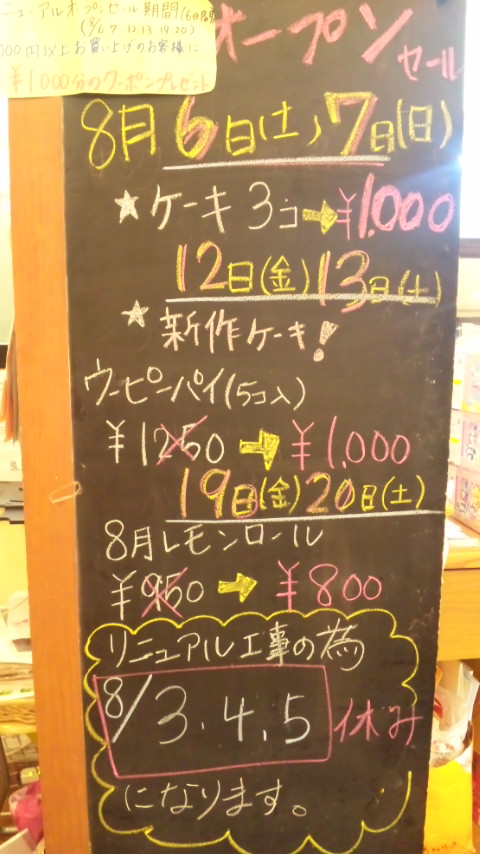 ニューアルオープンセール期間(6日間)
(8/6.7.12.13.19.20)
000円以上お買い上げのお客様に
¥1,000分のクーポンプレゼント
オープン
セール
8月6日(土),7日(日)
★ケーキ3コ→¥1,000
12日(金)13日(土)
★新作ケーキ!
ウーピーパイ(5コ入)
¥1250→¥1,000
19日(金)20日(土)
8月レモンロール
¥950→¥800
リニュアル工事の為
8/3.4.5休み
になります。